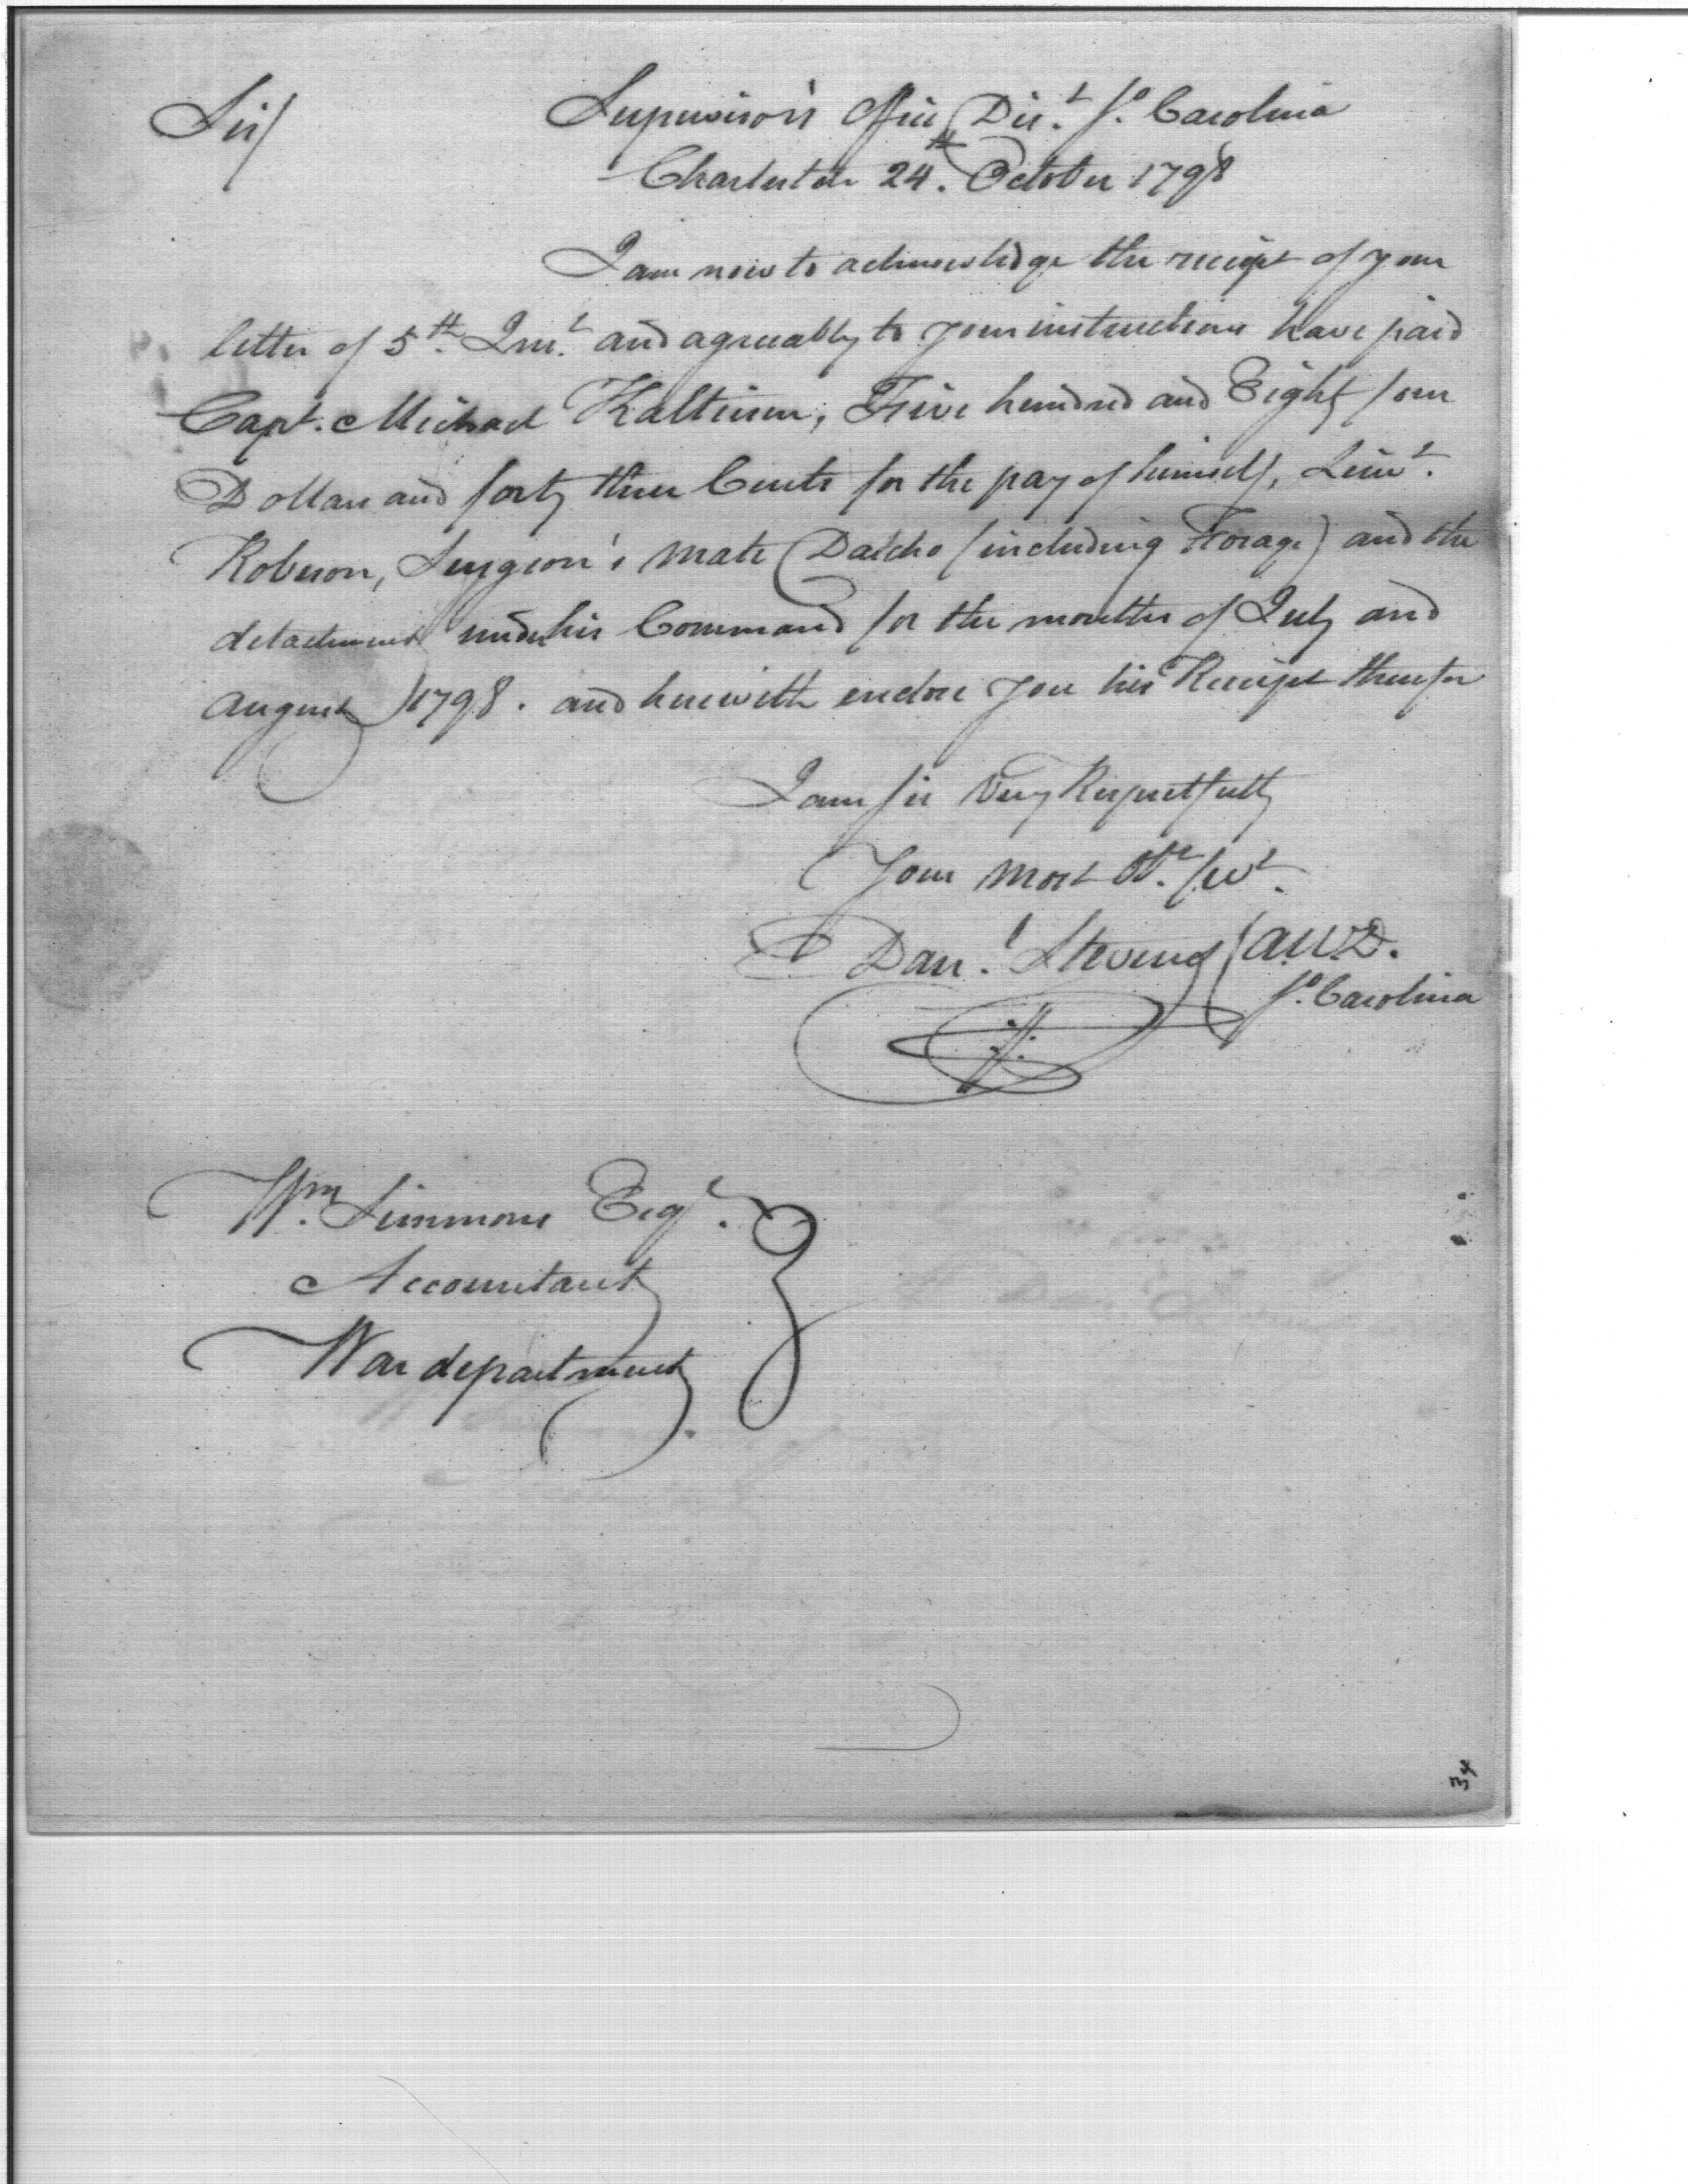 Sir/
Supervisor's Office Dist. So. Carolina
Charleston 24th. October 1798
I am now to acknowledge the receipt of your
letter of 5th. Inst. and agreeably to your instructions have paid
Capt. Michael Kalteisen, Five hundred and Eighty four
Dollars and forty three Cents for the pay of himself, Lieut.
Robeson, Surgeon's Mate Dalcho (including Forage) and the
detachment under his Command for the months of July and
August 1798. and herewith enclose you his Receipt therefor
I am sir Very Respectfully
Your Most Obt. Servt.
Danl. Stevens
So. Carolina
Wm. Simmons Esqr.
Accountant
War department.